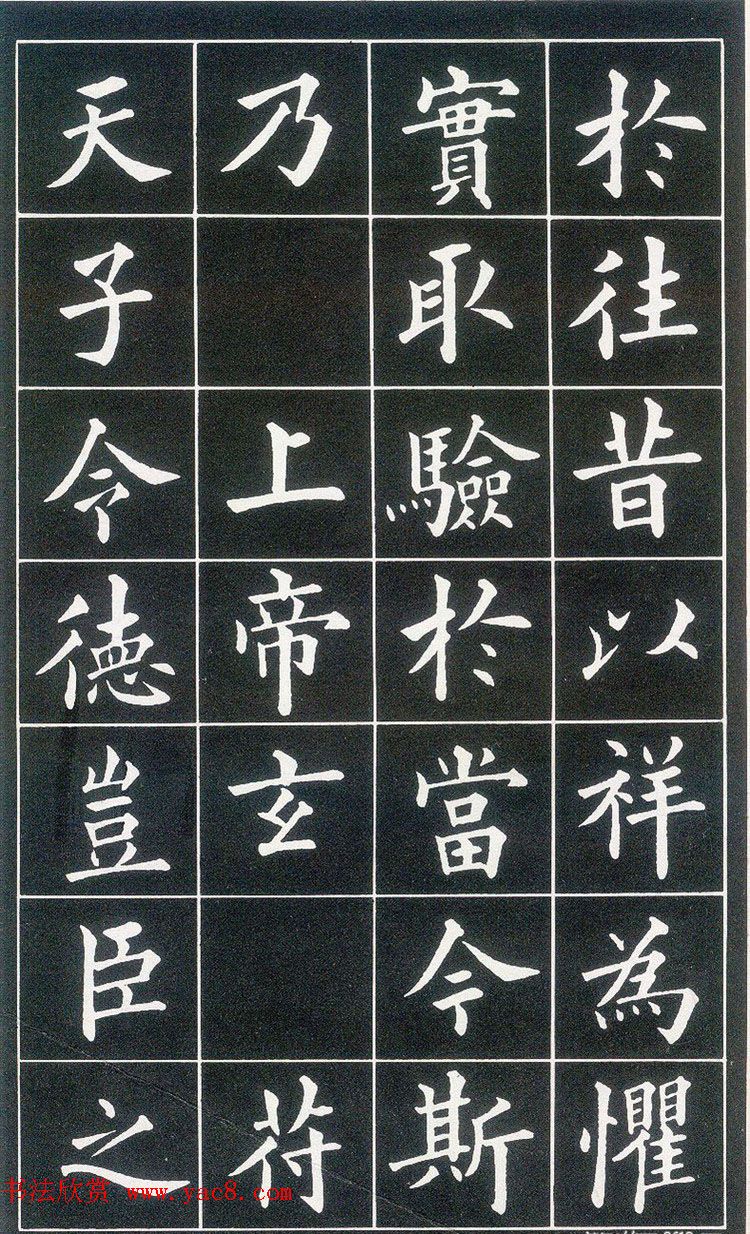 於往昔以祥為懼
實取驗於當今斯
乃上帝玄符
天子令德豈臣之
书法欣赏 www.yac8.com